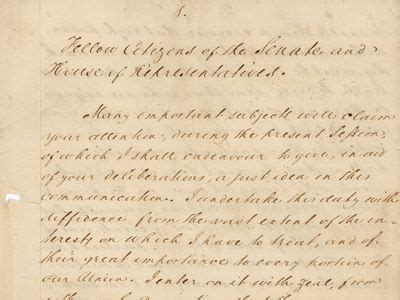 1.
Fellow Citizens of the Senate and
House of Representatives.
Many important subjects will claim
your attention, during the present Session,
of which I shall endeavour to give, in aid
of your deliberations, a just idea in this
communication. I undertake this duty with
diffidence, from the vast extent of the in-
terests on which I have to treat, and of
their great importance to every portion of
our Union. I enter on it with zeal, from